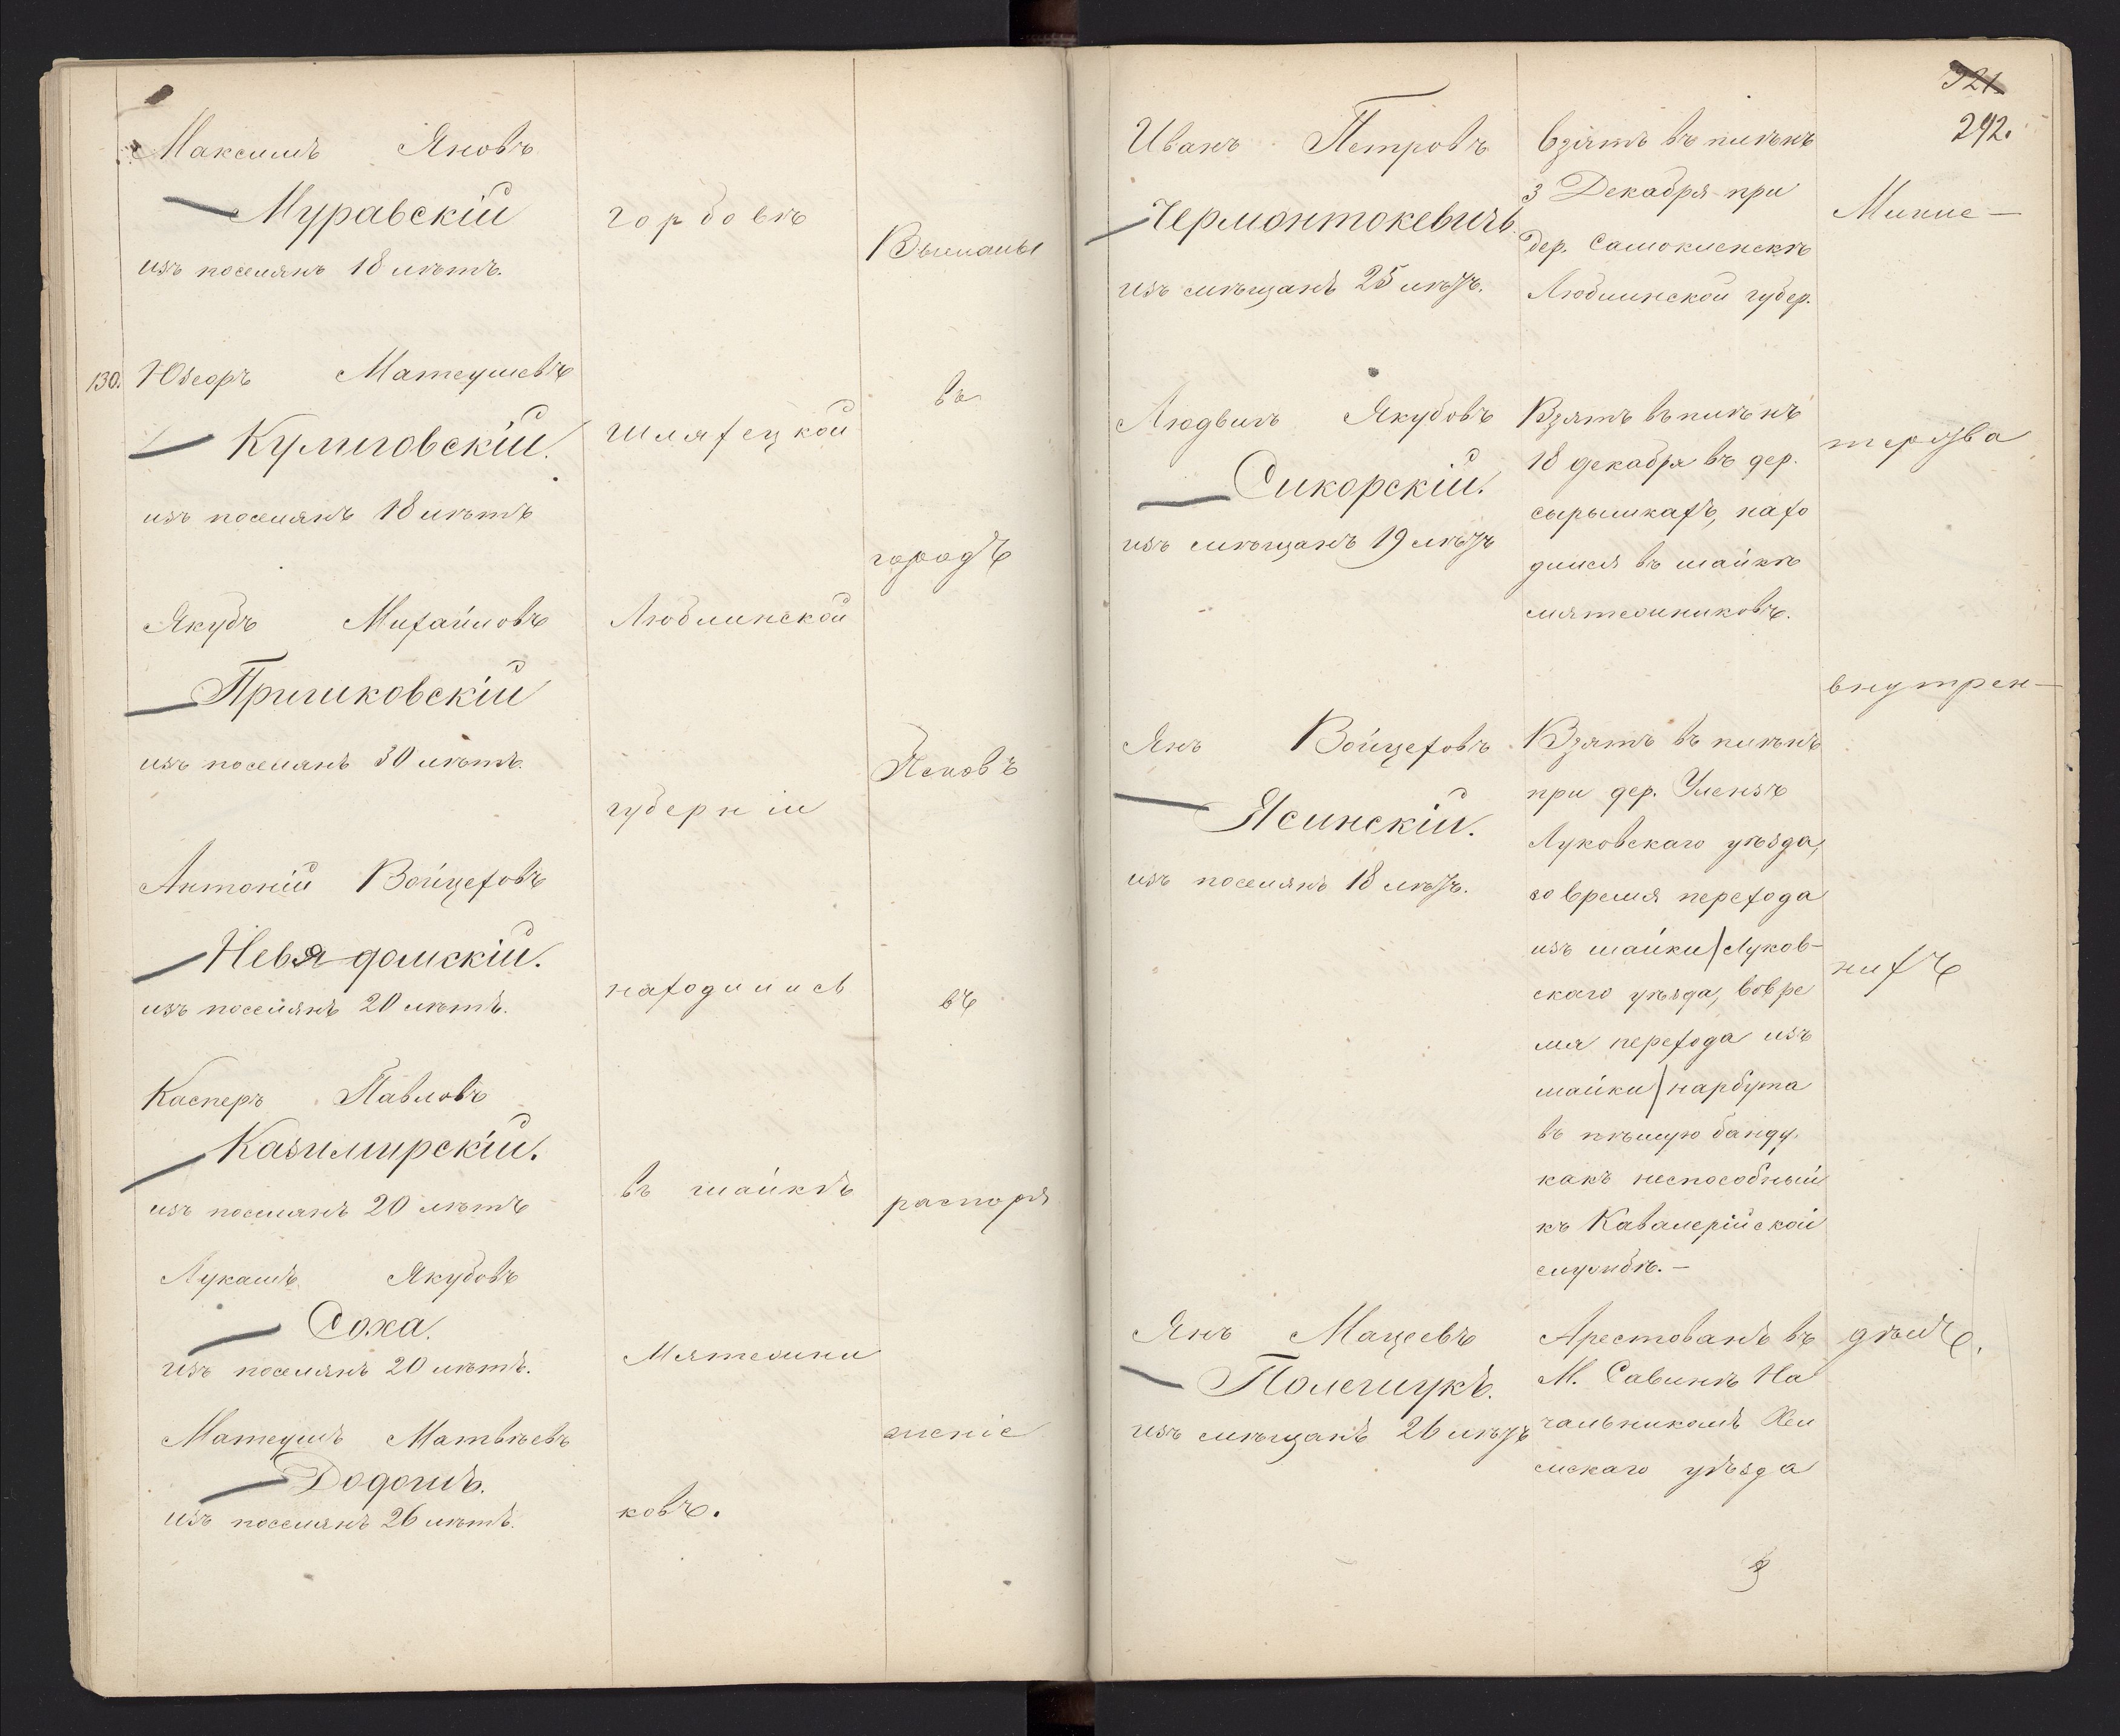 Максимъ Яновъ
Муравскій
изъ поселянъ 18 лѣтъ.
130. Юзефъ Матеушевъ
Кулиговскій.
изъ поселянъ 18 лѣтъ
Якубъ Михайловъ
Пришковскій
изъ поселянъ 30 лѣтъ.
Антоній Войцеховъ
Невядомскій.
изъ поселянъ 20 лѣтъ.
Касперъ Павловъ
Казимирскій.
изъ поселянъ 20 лѣтъ
Лукашъ Якубовъ
Соха.
изъ поселянъ 20 лѣтъ.
Матеушъ Матвѣевъ
Додошъ.
изъ поселянъ 26 лѣтъ.
Горбовѣ
Шляхецкой
Люблинской
губерніи
находились
въ шайкѣ
Мятежни
ковъ.
Высланы
въ
городъ
Псковъ
въ
распоря
женіе
321.
292.
Иванъ Петровъ
Чермонтокевичъ.
изъ мѣщанъ 25 лѣтъ.
Людвигъ Якубовъ
Сикорскій.
изъ мѣщанъ 19 лѣтъ
Янъ Войцеховъ
Ясинскій.
изъ поселянъ 18 лѣтъ.
Янъ Мацеевъ
Полещукъ.
изъ мѣщанъ 26 лѣтъ
Взятъ въ плѣнъ
3 Декабря при
дер. Самокленскѣ
Люблинской губер.
Взятъ въ плѣнъ
18 декабря въ дер.
сырышкахъ, нахо
дился въ шайкѣ
мятежниковъ.
Взятъ въ плѣнъ
при дер. Улензъ
Луковскаго уѣзда,
во время перехода
изъ шайки/Луков-
скаго уѣзда, во вре
мя перехода изъ
шайки/нарбута
въ пѣшую банду,
какъ неспособный
къ Кавалерійской
службѣ. —
Арестованъ въ
М. Савинѣ На
чальникомъ Хел
мскаго уѣзда
Мини-
терства
внутрен-
нихъ
дѣлъ.